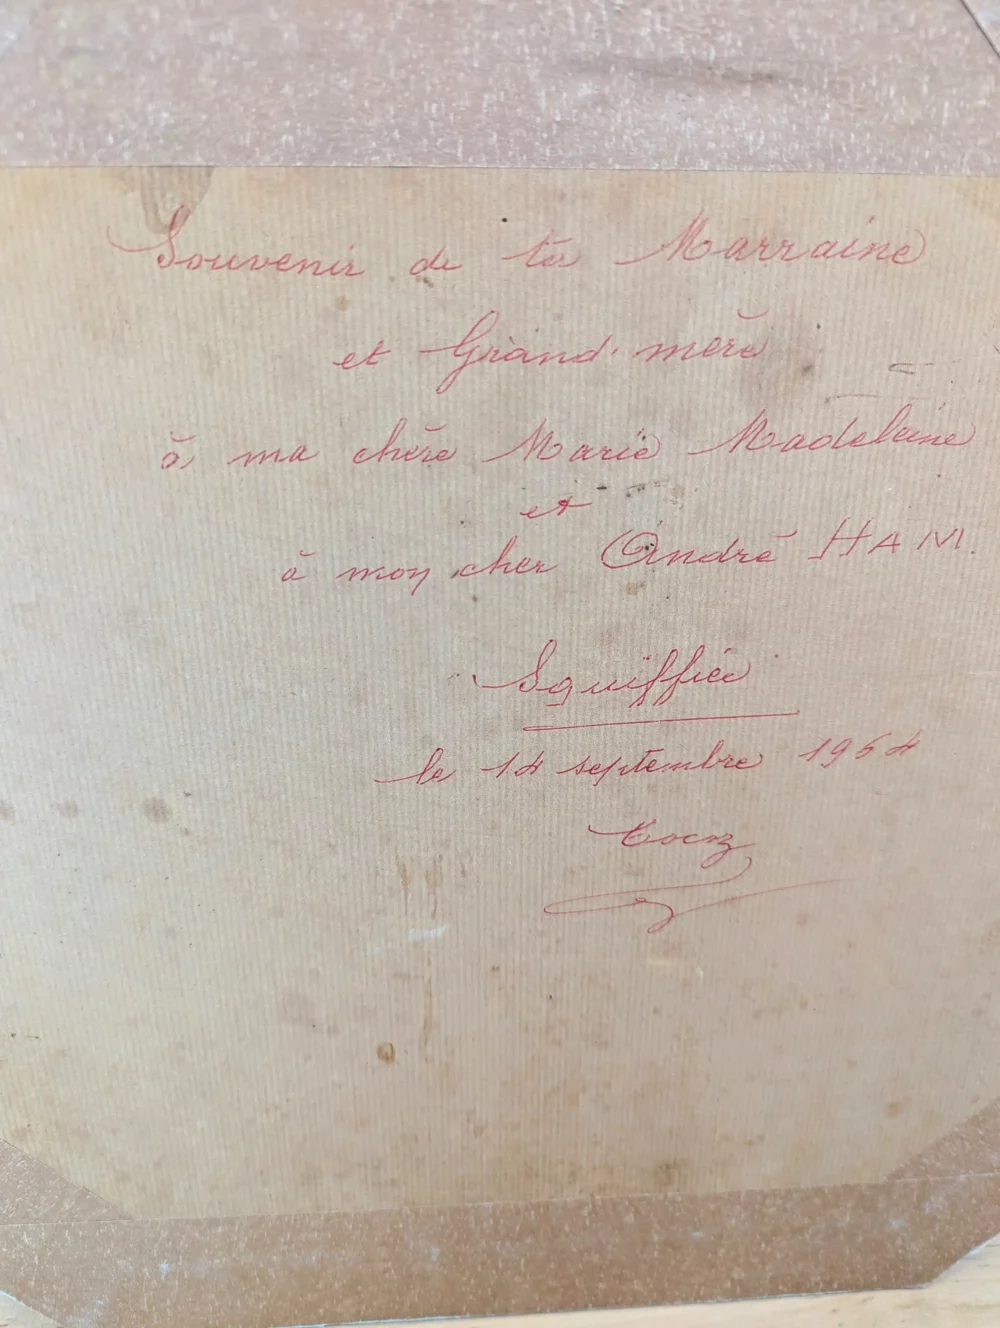 Souvenir de ta Marraine
et Grand'mère
à ma chère Marie Madeleine
et
à mon cher André HAM.
Squiffiec
le 14 septembre 1964